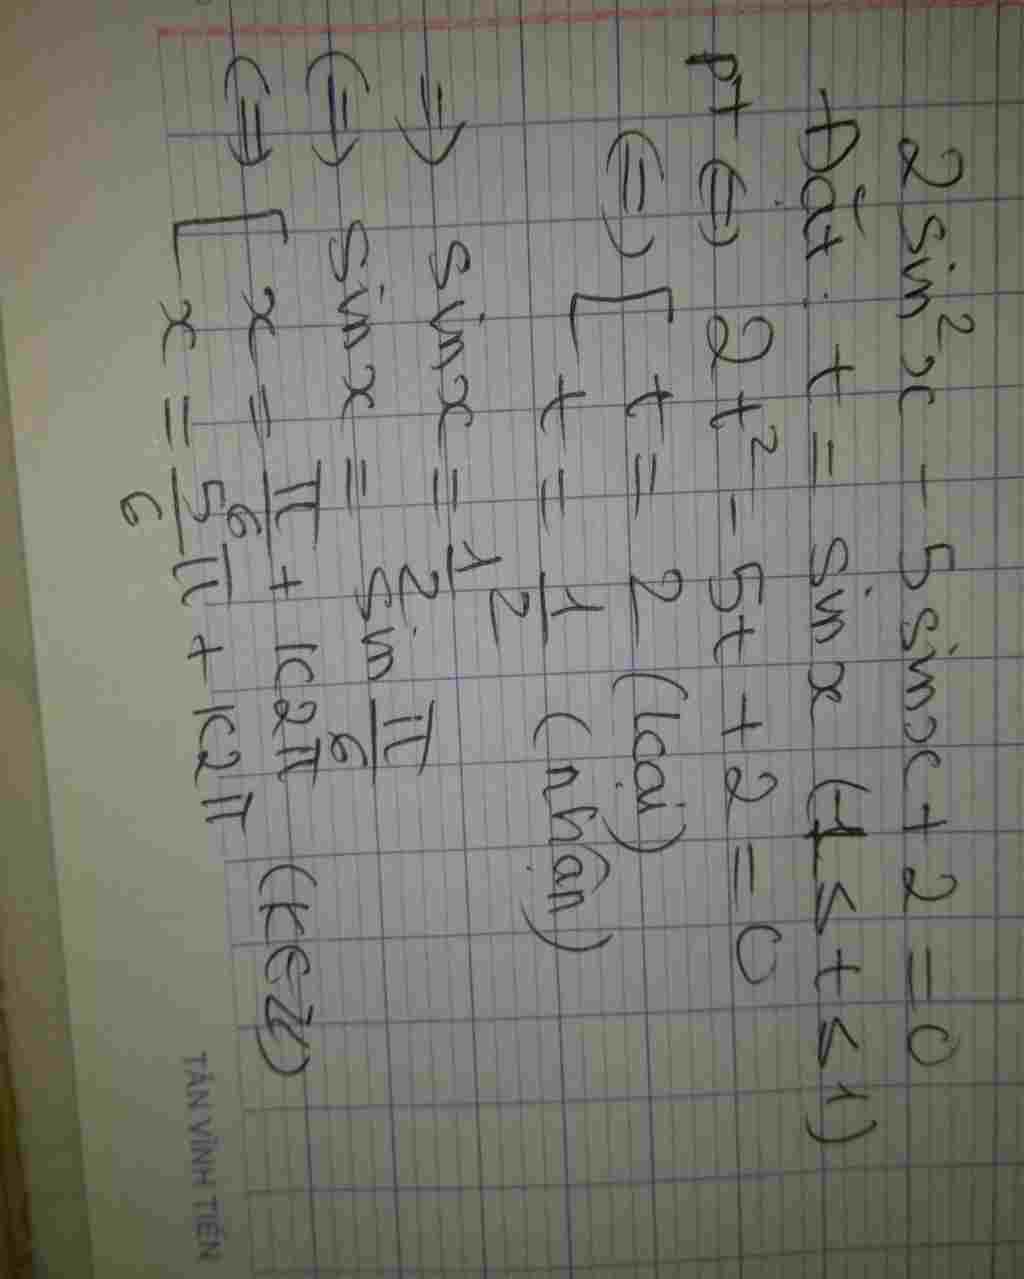 2sin²x - 5sinx + 2 = 0
Đặt t = sinx (-1 ≤ t ≤ 1)
pt ⇔ 2t² - 5t + 2 = 0
⇔ [ t = 2 (loại)
t = 1/2 (nhận)
⇒ sinx = 1/2
⇔ sinx = sin π/6
⇔ [ x = π/6 + k2π (k∈Z)
x = 5/6 π + k2π
TÂN VĨNH TIẾN